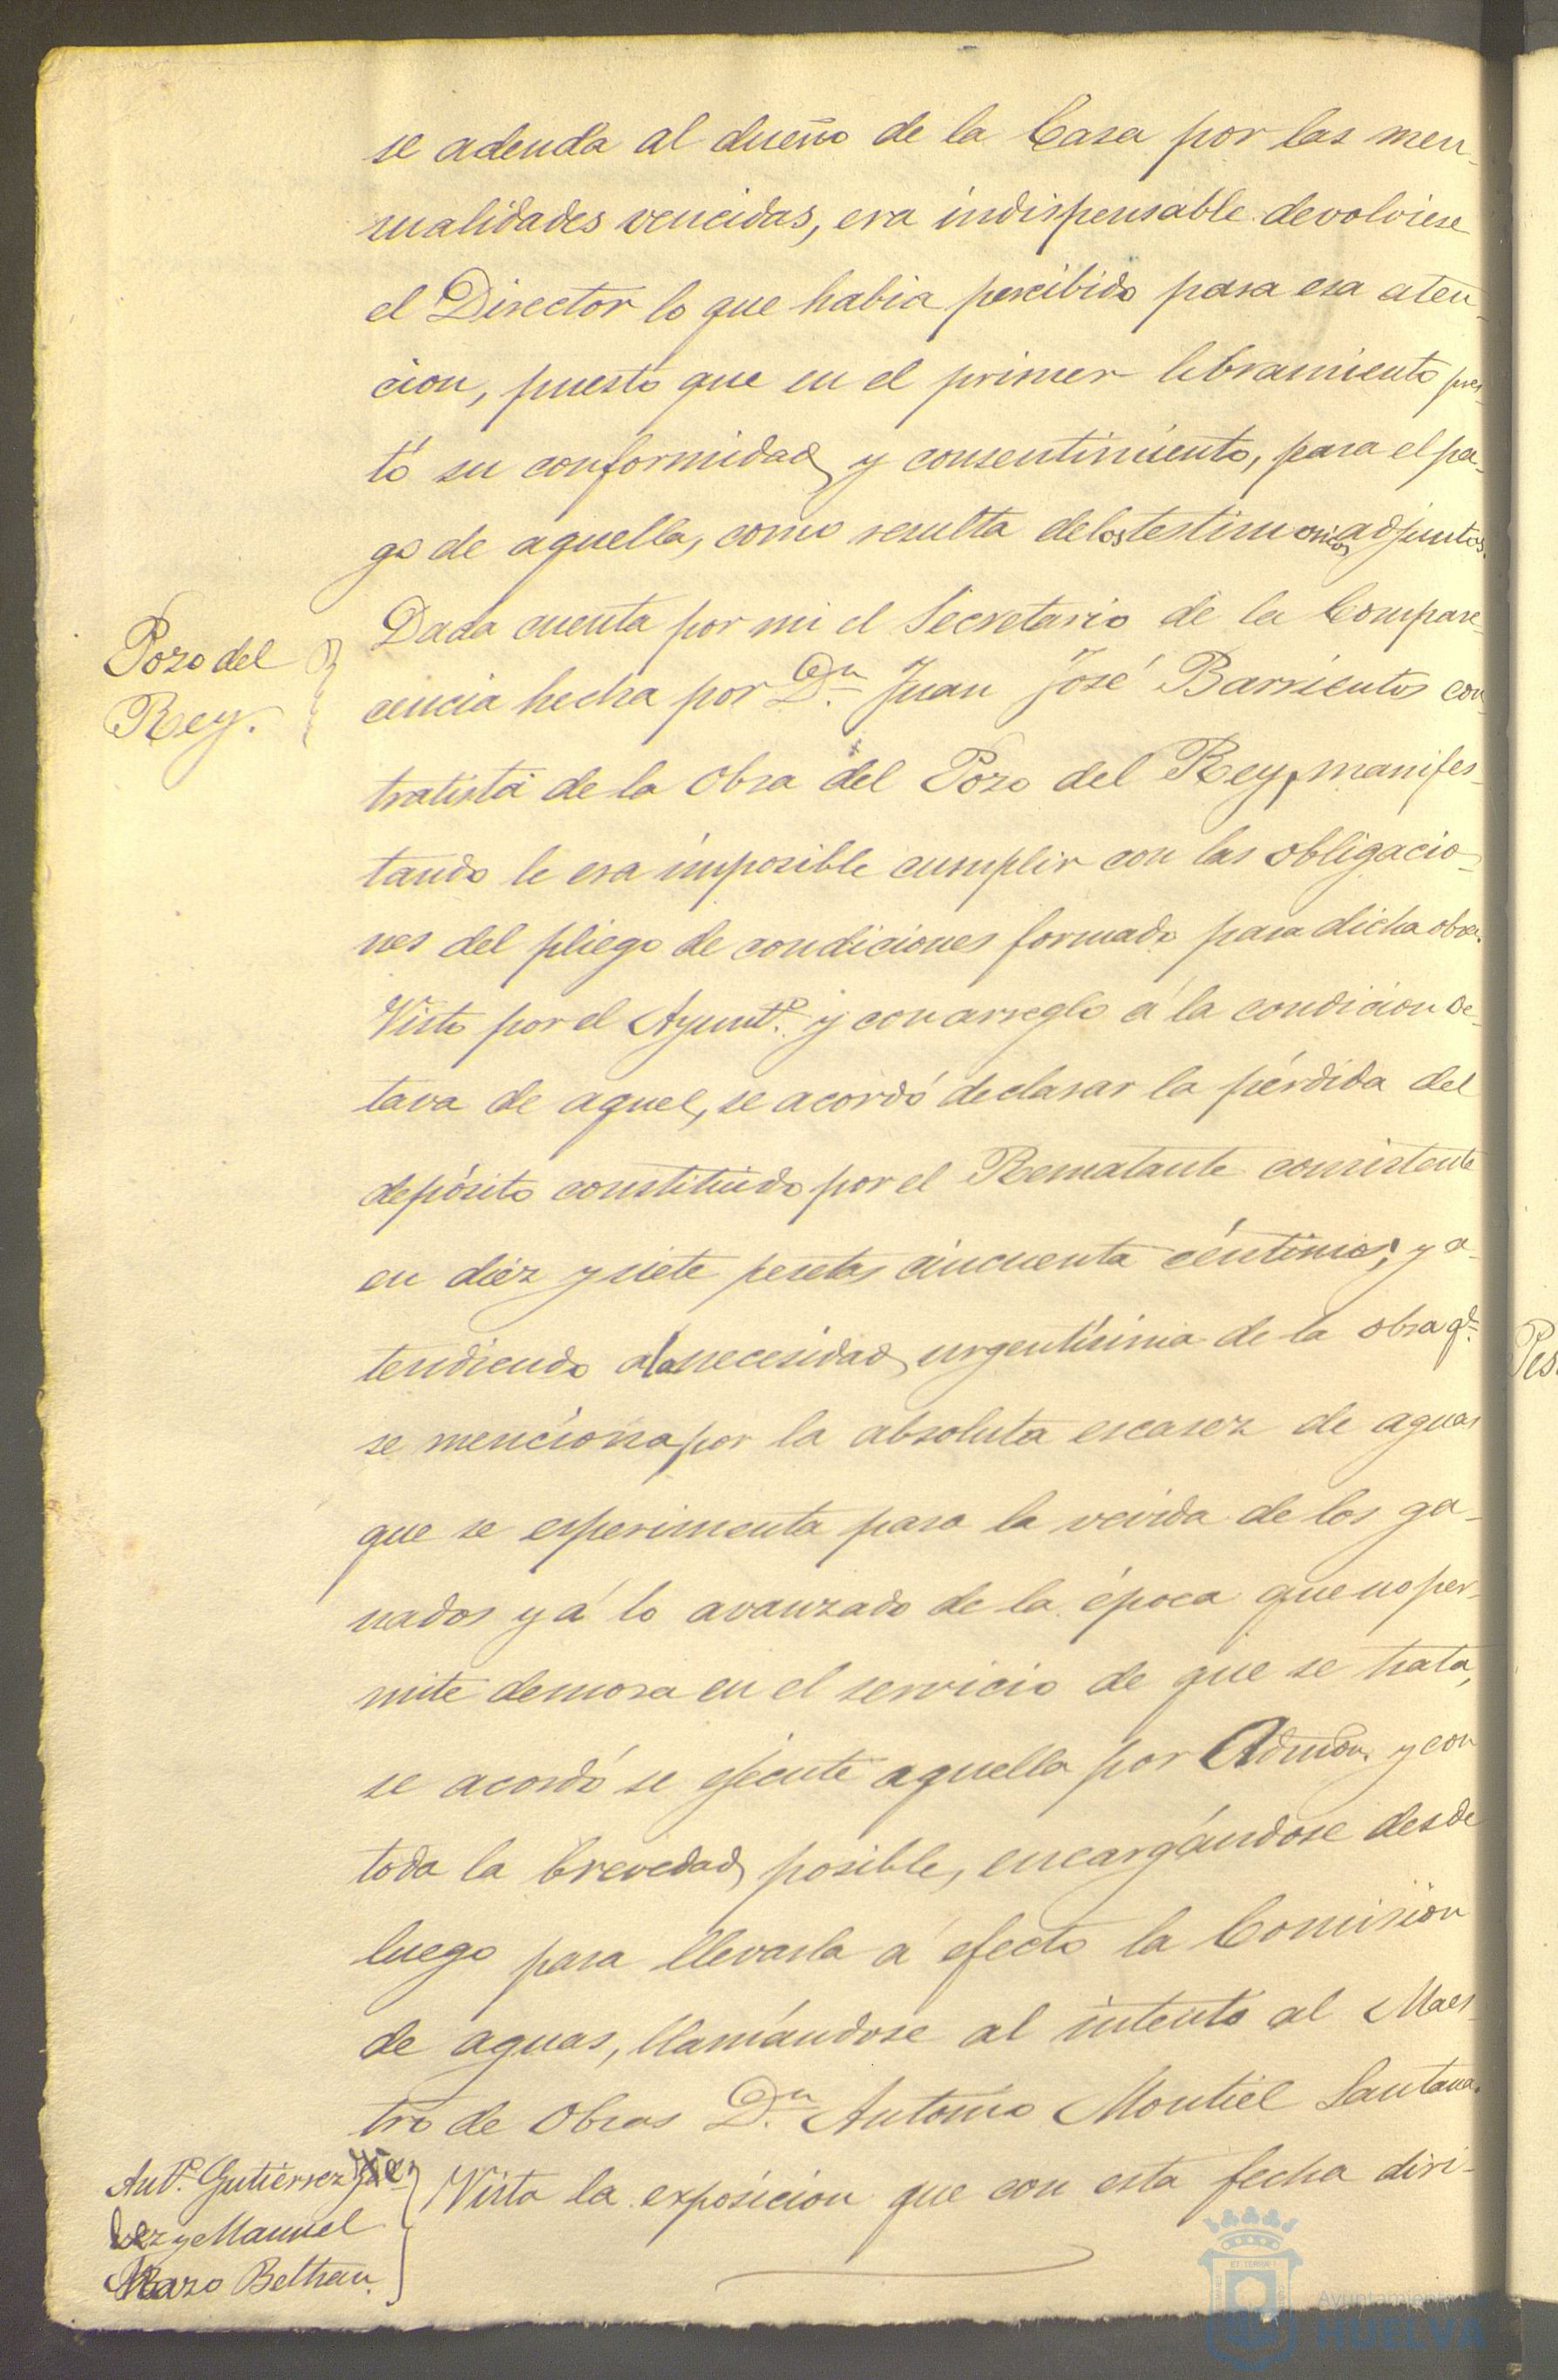 se adeuda al dueño de la Casa por las men-
sualidades vencidas, era indispensable devolviese
el Director lo que habia percibido para esa aten-
cion, puesto que en el primer libramiento pres-
tó su conformidad y consentimiento, para el pa-
go de aquella, como resulta de los testimonios adjuntos.
Pozo del
Rey.
Dada cuenta por mi el Secretario de la Compare-
cencia hecha por Dn. Juan José Barrientos con-
tratista de la Obra del Pozo del Rey, manifes-
tando le era imposible cumplir con las obligacio-
nes del pliego de condiciones formado para dicha obra.
Visto por el Ayuntº. y con arreglo á la condicion oc-
tava de aquel, se acordó declarar la pérdida del
depósito constituido por el Rematante consistente
en diez y siete pesetas cincuenta céntimos; y a-
tendiendo a la necesidad urgentísima de la obra qe.
se menciona por la absoluta escasez de aguas
que se esperimenta para la vevida de los ga-
nados y á lo avanzado de la época que no per-
mite demora en el servicio de que se trata,
se acordó se ejecute aquella por Admon. y con
toda la brevedad posible, encargándose desde
luego para llevarla á efecto la Comision
de aguas, llamándose al intento al Maes-
tro de Obras Dn. Antonio Montiel Santana.
Antº. Gutierrez
y Manuel
Beltran.
Vista la exposicion que con esta fecha diri-
Pes.
Ayuntamiento de
HUELVA